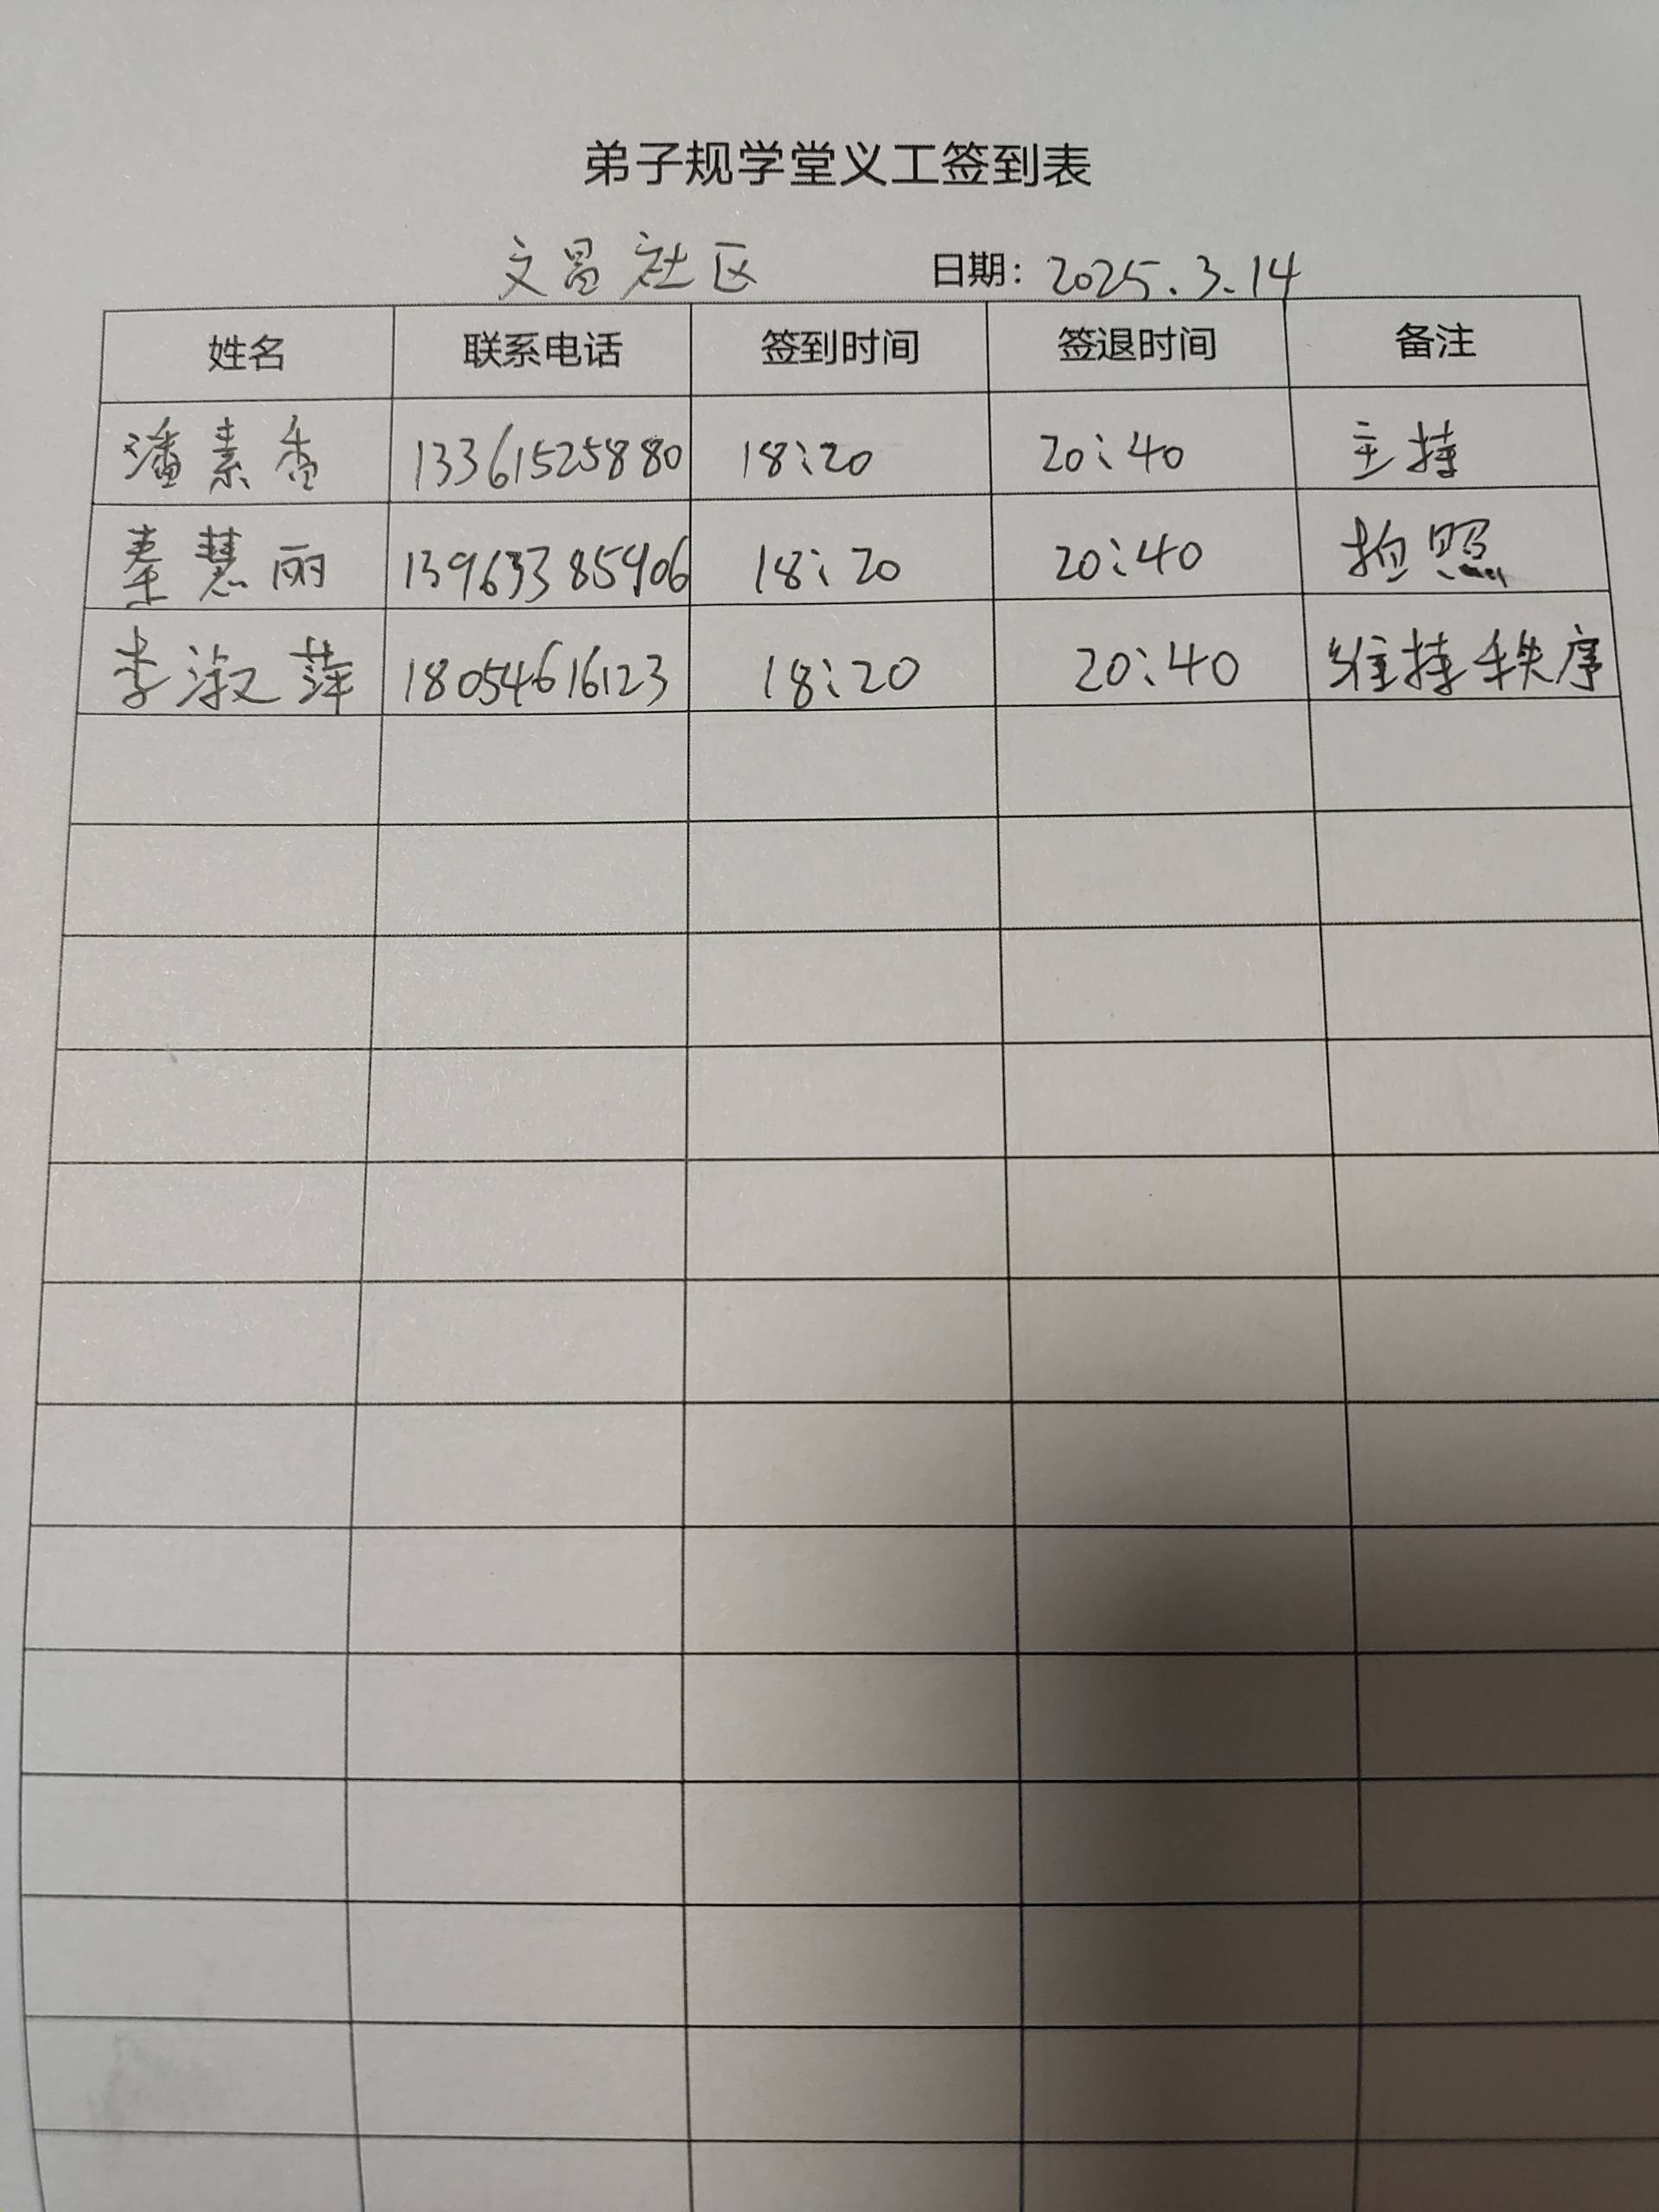 弟子规学堂义工签到表
文昌社区 日期：2025.3.14
姓名 联系电话 签到时间 签退时间 备注
潘素香 13361525880 18:20 20:40 主持
秦慧丽 13963385906 18:20 20:40 拍照
李淑萍 18054616123 18:20 20:40 维持秩序